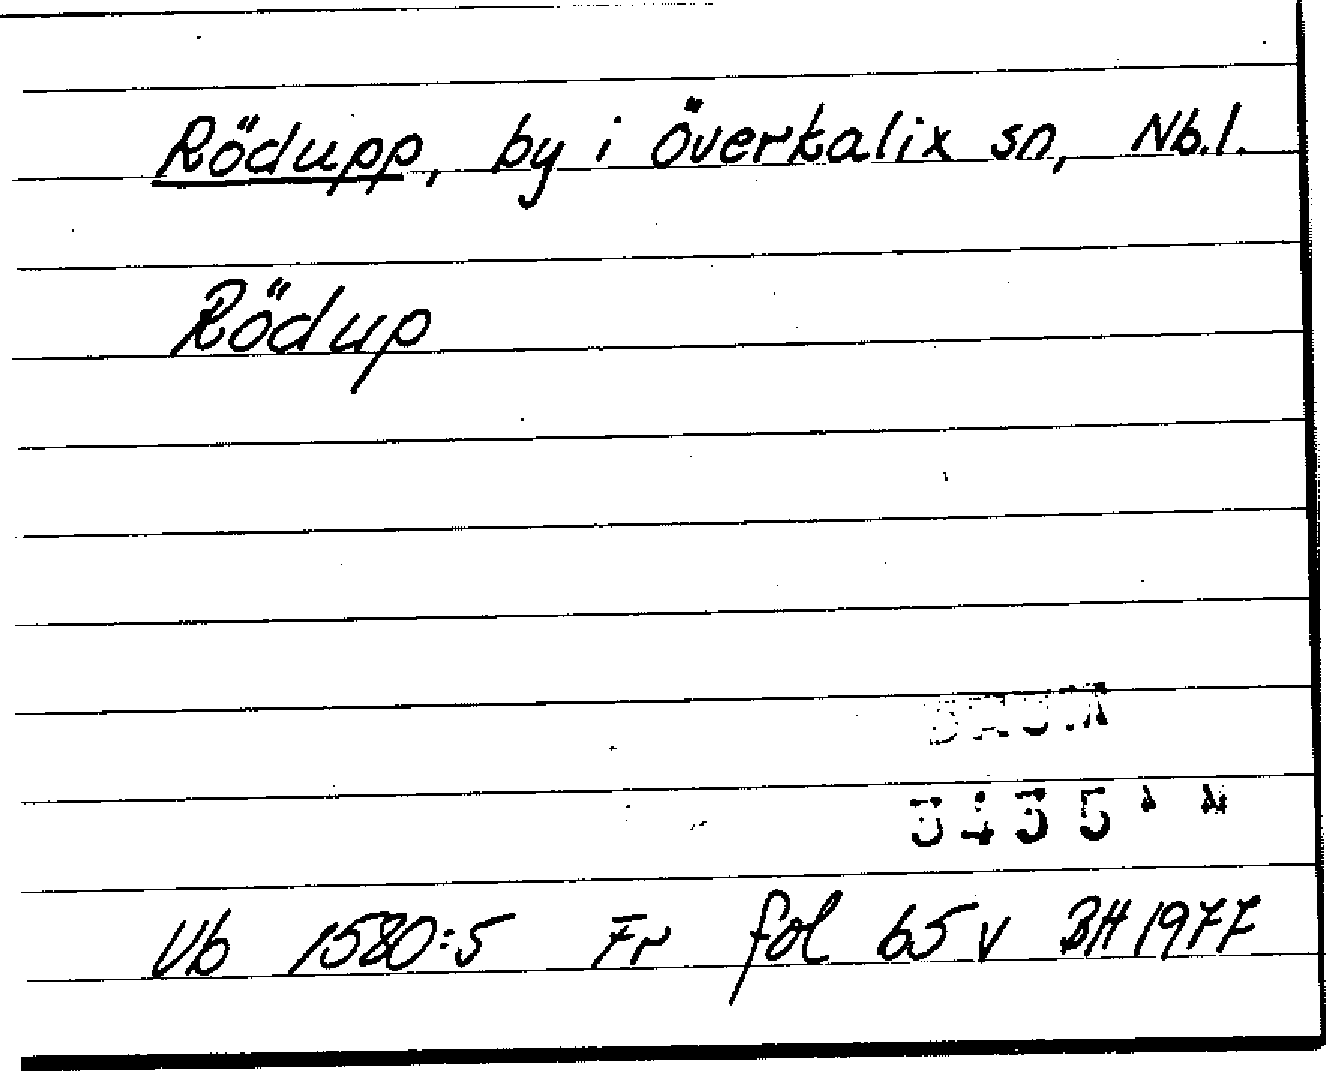 Rödupp, by i Överkalix sn, Nb.l.
Rödup
Vb 1580:5 Fr fol 65 v BH 1977